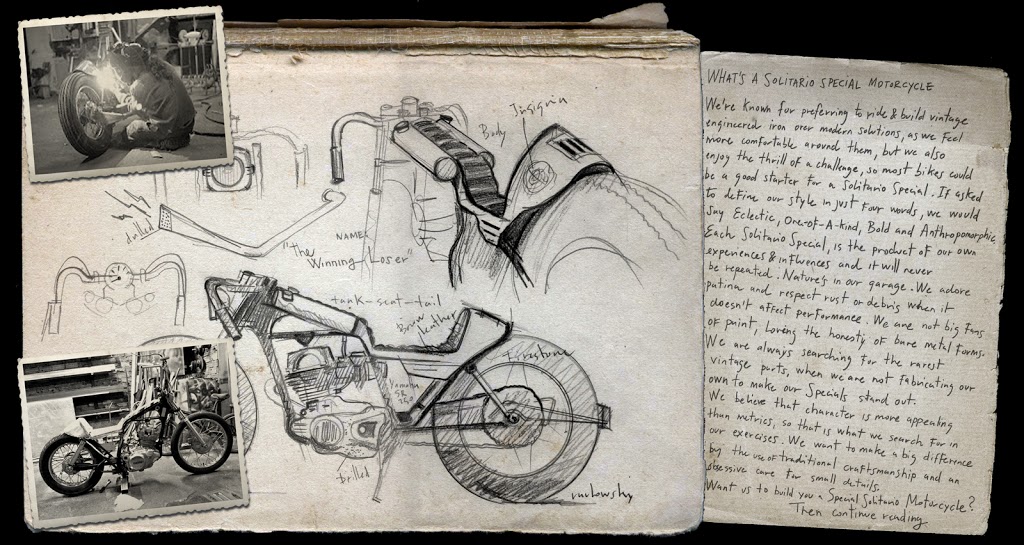 Insignia
Body
drilled
NAME:
"The
Winning Loser"
tank-seat-tail
Brown
leather
Firestone
Yamaha
SR
drilled
WHAT'S A SOLITARIO SPECIAL MOTORCYCLE
We're known for preferring to ride & build vintage
engineered iron over modern solutions, as we feel
more comfortable around them, but we also
enjoy the thrill of a challenge, so most bikes could
be a good starter for a Solitario Special. If asked
to define our style in just four words, we would
say Eclectic, One-of-A-kind, Bold and Anthropomorphic.
Each Solitario Special, is the product of our own
experiences & influences and it will never
be repeated. Nature's in our garage. We adore
patina and respect rust or debris when it
doesn't affect performance. We are not big fans
of paint, loving the honesty of bare metal forms.
We are always searching for the rarest
vintage parts, when we are not fabricating our
own to make our Specials stand out.
We believe that character is more appealing
than metrics, so that is what we search for in
our exercises. We want to make a big difference
by the use of traditional craftsmanship and an
obsessive care for small details.
Want us to build you a Special Solitario Motorcycle?
Then continue reading